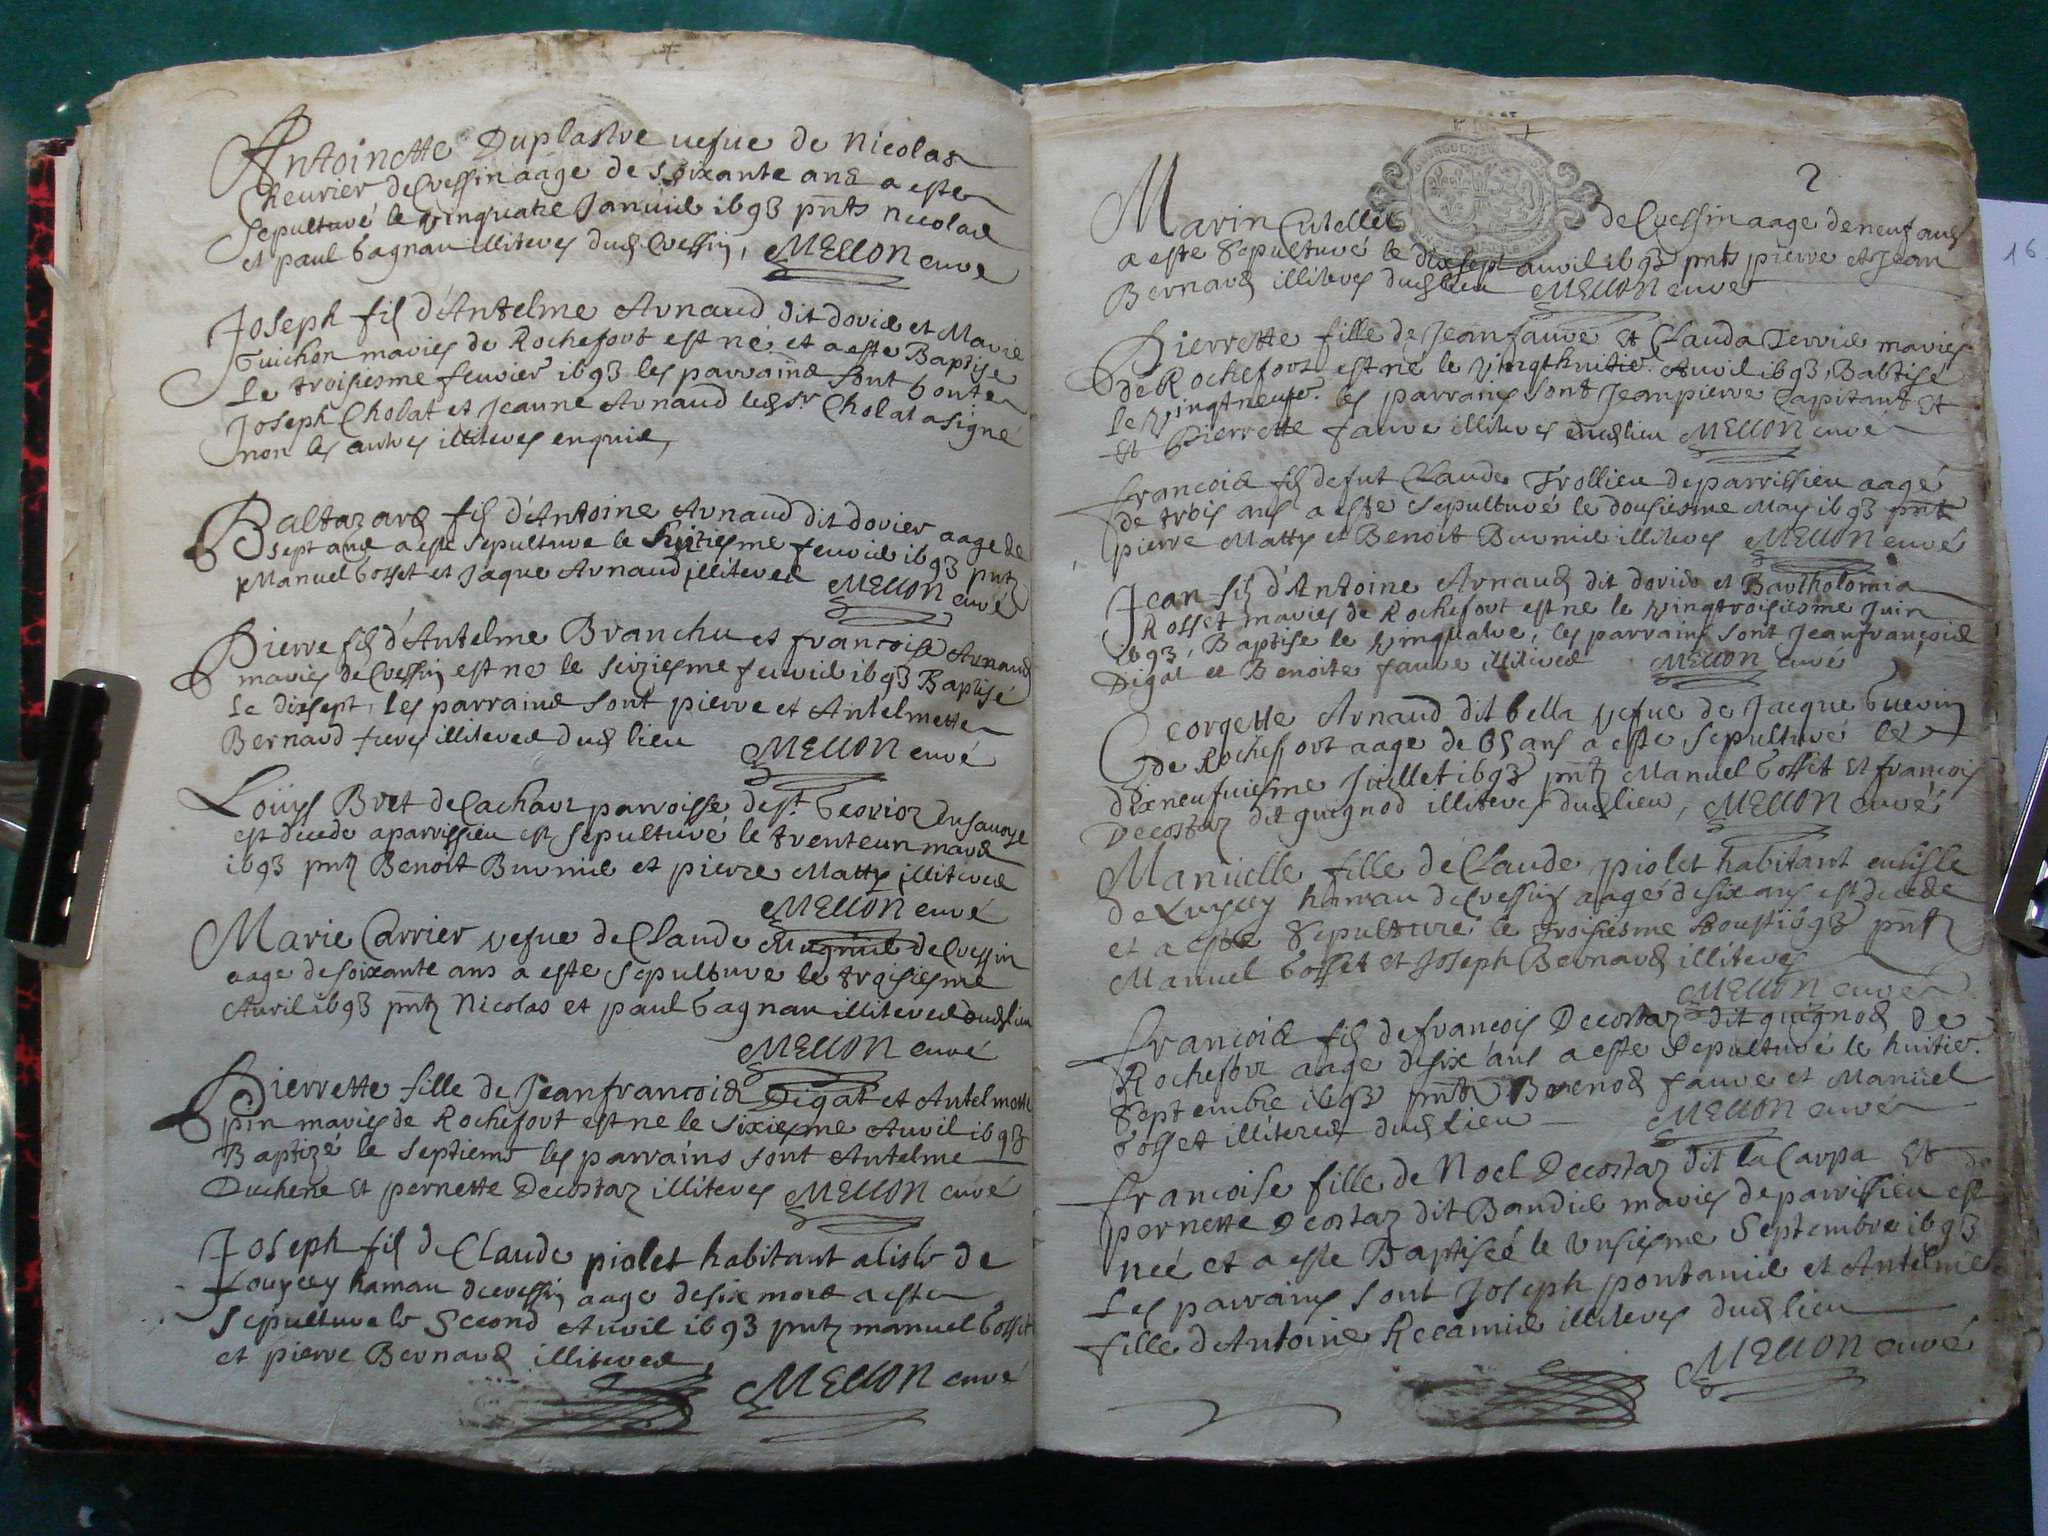 Antoinette Duplastre vefve de Nicolas
Chevrier de Cressin aage de soixante ans a este
sepulturé le vinquatre Janvier 1693 pnts Nicolas
et paul Gagnau illiteres dud Cressin, MELLON curé
Joseph fils d'Antelme Arnaud dit dovier et Marie
Guichon mariés de Rochefort est né et a este Baptise
Le troisiesme feuvier 1693 les parrains sont honte
Joseph Cholat et Jeanne Arnaud led Sr Cholat a signé
non les autres illiteres enquis,
Baltazard fils d'Antoine Arnaud dit dovier aage de
sept ans a este sepulture le huitiesme feuvier 1693 pntz
Manuel Gosset et Jaque Arnaud illiteres MELLON curé
Pierre fils d'Antelme Branchu et francoise Arnaud
mariés de Cressin est ne le seiziesme feuvier 1693 Baptisé
Le dixsept, les parrains sont pierre et Antelmette
Bernard illiteres dud lieu MELLON curé
Loüys Bret de parroisse de st. en savoye
est décédé a parrissieu est sepulturé le trenteun mars
1693 pntz Benoit Burnier et pierre Matty illiteres
MELLON curé
Marie Carrier vefve de Claude Mugnier de Cressin
aage de soixante ans a este sepulture le troisiesme
Avril 1693 pntz Nicolas et paul Gagnau illiteres dud lieu
MELLON curé
Pierrette fille de Jeanfrancois Digat et Antelmette
pin mariés de Rochefort est ne le sixiesme Auvril 1693
Baptizé le septieme les parrains sont Antelme
Duchene et pernette Decostaz illiteres MELLON curé
Joseph fils de Claude piolet habitant a lisle de
Louycey hamau de cressin aage de six mois a este
sepulture le Second Auvril 1693 pntz manuel Gosset
et pierre Bernard illiteres, MELLON curé
2
Marin Cutellet de Cressin aage de neuf ans
a este sepulturé le dixsept auvril 1693 pnts pierre et Jean
Bernard illiteres dud lieu MELLON curé
Pierrette fille de Jean fauvre et Clauda Terrier mariés
de Rochefort est né le vingthuitie. Auvril 1693, Babtisé
le vingtneufe. les parrains sont Jeanpierre Capitant et
et Pierrette fauvre illiteres dud lieu MELLON curé
francois fils de fut Claude Trollieu de parrissieu aagé
de trois ans a este sepulturé le dousiesme May 1693 pnts
pierre Matty et Benoit Burnier illiteres MELLON curé
Jean fils d'Antoine Arnaud dit dovier et Bartholomia
Rosset mariés de Rochefort est ne le vingtroisiesme Juin
1693, Baptise le vinquatre, les parrains sont Jeanfrançois
Digat et Benoite fauvre illiteres MELLON curé
Georgette Arnaud dit bella vefve de Jacque Guerin
de Rochesfort aage de 65 ans a este sepulturé le
dixneufuiesme Juillet 1693 pntz Manuel Gosset et francois
Decostaz dit guignod illiteres dud lieu, MELLON curé
Manüelle fille de Claude piolet habitant en lisle
de Luycey hamau de Cressin aagé de six ans est decede
et a este sepulturé le troisiesme Aoust 1693 pntz
Manuel Gosset et Joseph Bernard illiteres
MELLON curé
francois fils de francois Decostaz dit guignod de
Rochefort aage de six ans a este sepulturé le huitie.
Septembre 1693 pntz fauvre et Manuel
Gosset illiteres dud lieu MELLON curé
francoise fille de Noel Decostaz dit la Carpa et de
pernette Decostaz dit Bandier mariés de parrissieu est
neé et a este Baptiseé le unsiesme Septembre 1693
Les parrains sont Joseph pontanier et Antelme
fille d'Antoine Recamier illiteres dud lieu
MELLON curé
16